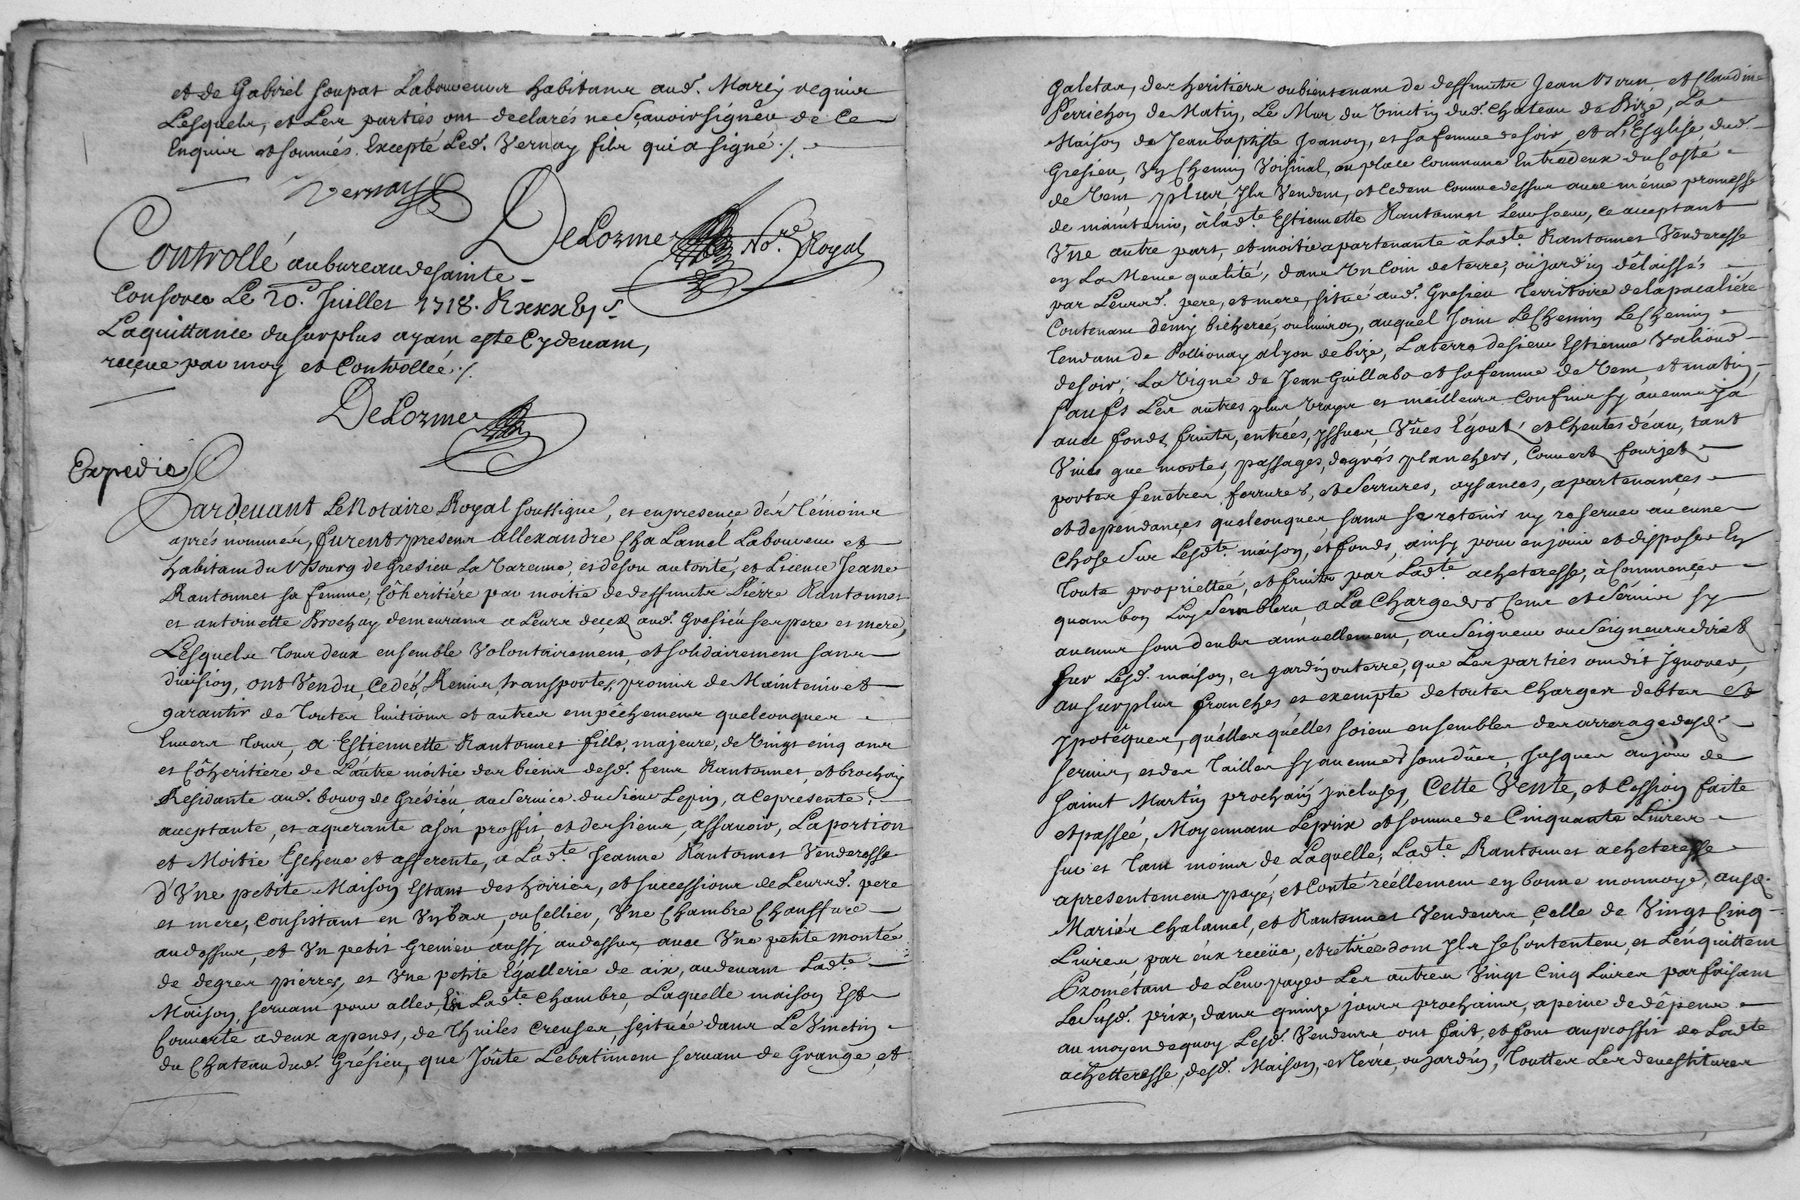 et de Gabriel Soupat Laboureurs habitans aud. Marcy requis
Lesquels, et Les parties ont declarés ne Sçavoir signer de ce
Enquis et sommés. Excepté Led. Vernay fils qui a signé ./.
Vernay
DeLorme No.re Royal
Controllé au bureau de sainte
Consorce Le 20.e Juillet 1718. R xxx
La quittance du surplus ayant esté Cy devant,
reçeüe par moy et Controllée ./.
DeLorme
Expedié
Pardevant Le Notaire Royal soussigné, et en presence des Témoins
aprés nommes, furent presens Allexandre Chalamel Laboureur et
habitant du Bourg de Gresieu La Varenne, et de son autorité, et Licence Jeane
Rantonnet sa femme, Cohéritiére par moitie de deffunts Pierre Rantonnet
et antoinette Brochay demeurans a Leurs deçez aud. Gresieu ses pere et mere,
Lesquels tous deux ensemble Volontairement, et solidairement sans
division, ont Vendu, Cedés, Remis, transportes, promis de Maintenir et
garantir de Toutes Evitions et autres empéchemens quelconques
Envers tous, a Estiennette Rantonnet fille, majeure, de Vingt cinq ans
et Cohéritiere de L'autre moitie des biens desd. feus Rantonnet, et brochay
Residante aud. bourg de Grésieu au Service du Sieur Lepin, a ce presente,
acceptante, et aquerante a son proffit et des siens, assavoir, La portion
et Moitie Escheue et afferente, a Lad.te Jeanne Rantonnet Venderesse
d'Une petite Maison Estant des hoiries, et successions de Leursd. pere
et mere, Consistant en Un bas, ou Cellier, Une Chambre Chauffure
au dessus, et Un petit Grenier aussy au dessus avec Une petite montée
de degres pierres, et Une petite Egallerie de aix, au devant Lad.te
Maison, servant pour aller En Lad.te Chambre, Laquelle maison Est
Couverte a deux apends, de Thuiles Creuses, scituée dans Le Vinctin
du Chateau dud. Gresieu, que Joûte Le batiment servant de Grange, et
Galetas, des heritiers ou bientenans de deffunts Jean Brun, et Claudine
Perrichon de Matin, Le Mur du Vinctin dud. Chateau de Bize, La
Maison de Jean baptiste Joanon, et sa femme de soir, et L'Esglise dud.
Gresieu, Un Chemin Voisinal, ou place Commune Entredeux du Costé
de Vent, plus, Ils Vendent, et Cedent comme dessus avec même promesse
de maintenir, à lad.te Estiennette Rantonnet Leur soeur, ce acceptant
Une autre part, et moitie apartenante à Lad.te Rantonnet Venderesse
en La Meme qualité, dans Un Coin de terre, ou jardin délaissés
par Leursd. pere, et mere, situé aud. Gresieu Territoire de la pacaliére
Contenant demy bicherée, ou environ, auquel Joint Le Chemin Le Chemin
tendant de Pollionay a lyon de bize, La terre de sieur Estienne
de soir, La Vigne de Jean Guillabo et sa femme de Vent, et matin,
saufs Les autres plus Vrays et meilleurs Confins sy aucuns y a
avec fonds, fruits, entrées, yssues, Vües, Egout, et Cheutes d'eau, tant
Vives que mortes, passages, degrés planchers, Couvert, fourjet
portes fenetres, ferrures, et Serrures, aysances, apartenances
et dependances quelconques, sans se retenir ny reserver aucune
Chose sur Lesd.te maison, et fonds, ainsy pour en jouir et disposer En
Toute proprieteé, et fruits par Lad.te acheteresse, à Commencer
quant bon Luy Semblera, a La Charge des Cens et Servis sy
aucuns sont deubs annuellement, au Seigneur ou Seigneurs directs
sur Lesd. maison, et jardin ou terre, que Les parties ont dit Ignorer,
au surplus franches et exempte de toutes charges debtes et
ypoteques, quélles quélles soient ensembles des arrerages desd.
servis, et des Tailles sy aucunes sont dües, Jusques au jour de
saint Martin prochain inclusé, Cette Vente, et Cession faite
et passée, Moyennant Le prix et somme de Cinquante Livres
sur et tant moins de Laquelle, Lad.te Rantonnet acheteresse
a presentement payé, et Conté réellement en bonne monnoye, ausd.
Mariés Chalamel, et Rantonnet Vendeurs Celle de Vingt Cinq
Livres par eux receüe, et retirée dont Ils se Contentent, et Lénquittent
Prométant de Leur payer Les autres Vingt Cinq Livres parfaisant
Lesusd. prix, dans quinze jours prochains, a peine de dêpens
au moyen de quoy Lesd. Vendeurs ont fait, et font au proffit de Lad.te
achetteresse, desd. Maison, et terre, ou jardin, Touttes Les devestitures